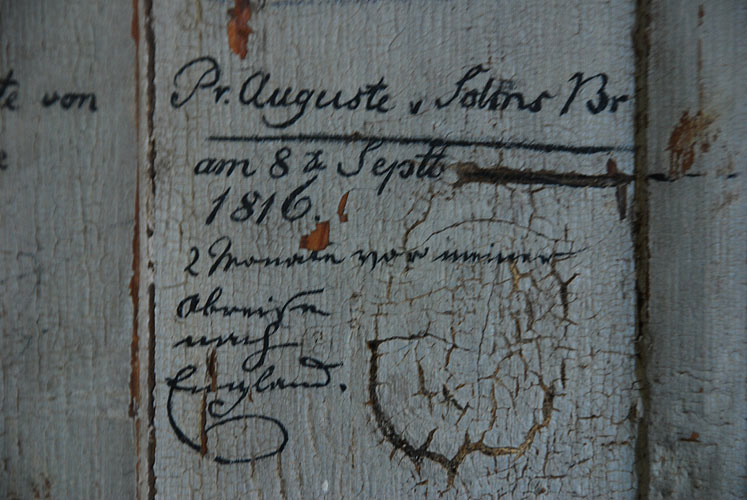 te von
Pr. Auguste v Solms Br
am 8 ten Septb
1816.
2 Monate vor meiner
Abreise
nach
England.